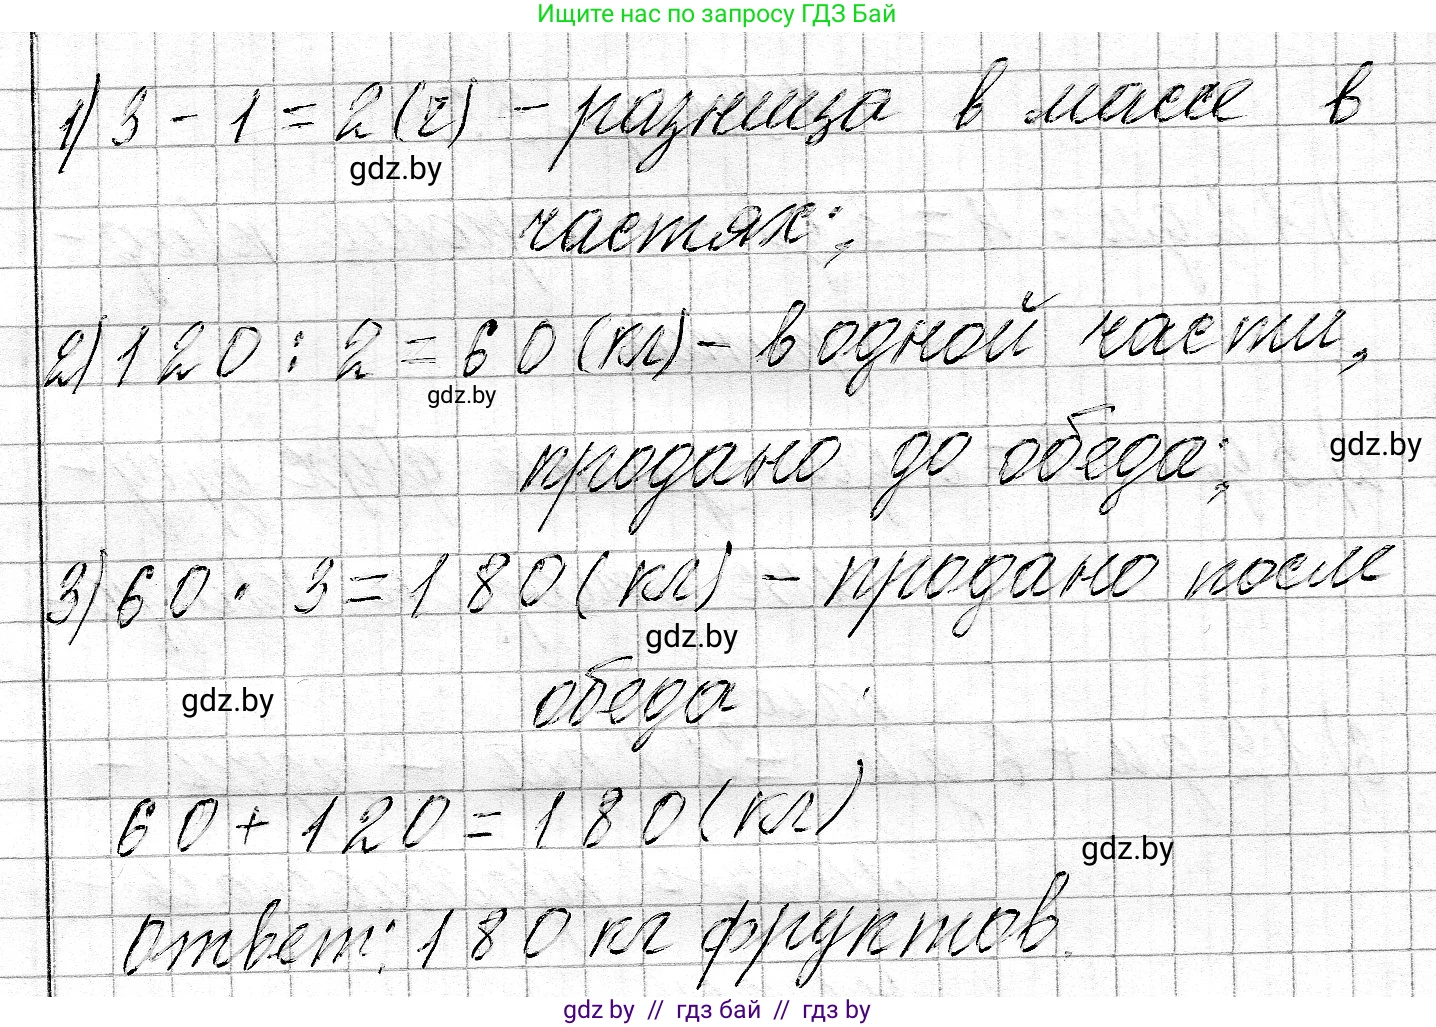 Ищите нас по запросу ГДЗ Бай
1) 3 - 1 = 2 (ч) - разница в массе в
gdz.by
частях;
2) 120 : 2 = 60 (кг) - в одной части,
gdz.by
продано до обеда;
gdz.by
3) 60 · 3 = 180 (кг) - продано после
gdz.by
обеда
gdz.by
60 + 120 = 180 (кг)
gdz.by
Ответ: 180 кг фруктов.
gdz.by // гдз бай // гдз by